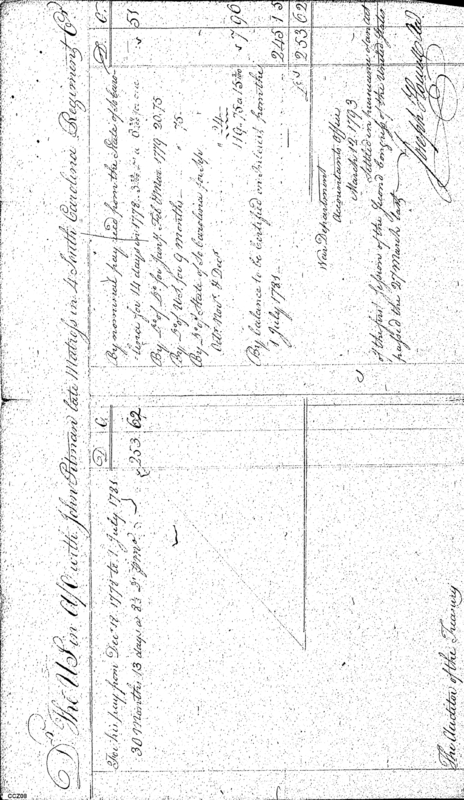 Dr. The US in A/C with John Pitman late Matross in 4 South Carolina Regiment Cr.
D. C.
For his pay from Decr. 17. 1778 to 1 July 1781
30 Months 13 days at 8 1/3 D. pr. Mo. 253 62
D. C.
By nominal pay from the State of So Caro-
lina for 14 days in 1778 51
By Do. of Do. for Jany. Feb & Mar 1779 20.75
By Do. of US for 9 months 75
By Do. of State of So Carolina for Sep
Octr Novr. & Decr. 24
119.75 7 96
By balance to be certified on Interest from the
1 July 1781 245 15
253 62
War Department
Accountants Office
March 12. 1793
Settled in pursuance of an act
of the first Session of the Second Congress of the United States
passed the 27 March last
Joseph Howell
The Auditor of the Treasury
CCZ08